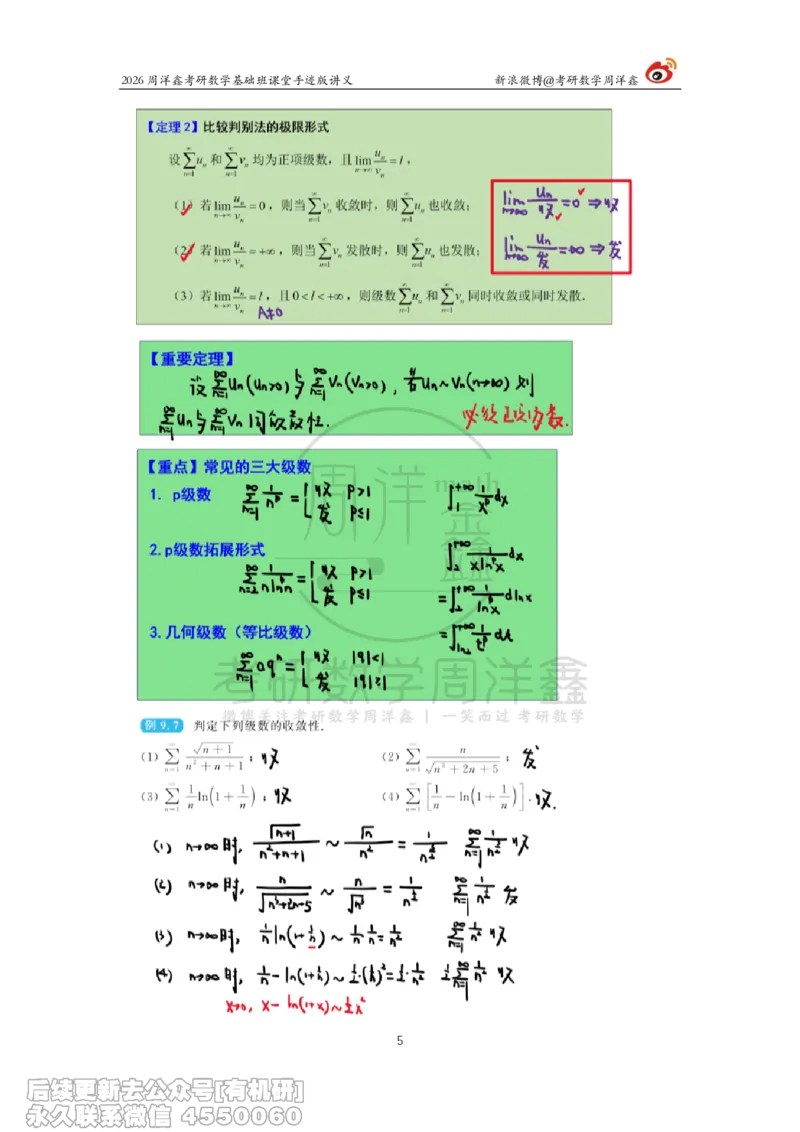 2026 周洋鑫考研数学基础班课堂手迹版讲义 新浪微博@考研数学周洋鑫
【定理 2】比较判别法的极限形式
设 ∑_{n=1}^{∞} u_n 和 ∑_{n=1}^{∞} v_n 均为正项级数，且 lim_{n→∞} u_n/v_n = l，
（1）若 lim_{n→∞} u_n/v_n = 0，则当 ∑_{n=1}^{∞} v_n 收敛时，则 ∑_{n=1}^{∞} u_n 也收敛； lim_{n→∞} u_n/收 = 0 ⇒ 收
（2）若 lim_{n→∞} u_n/v_n = +∞，则当 ∑_{n=1}^{∞} v_n 发散时，则 ∑_{n=1}^{∞} u_n 也发散； lim_{n→∞} u_n/发 = ∞ ⇒ 发
（3）若 lim_{n→∞} u_n/v_n = l，且 0 < l < +∞，则级数 ∑_{n=1}^{∞} u_n 和 ∑_{n=1}^{∞} v_n 同时收敛或同时发散.
A≠0
【重要定理】
设 ∑_{n=1}^{∞} u_n (u_n>0) 与 ∑_{n=1}^{∞} v_n (v_n>0), 若 u_n ~ v_n (n→∞) 则
∑_{n=1}^{∞} u_n 与 ∑_{n=1}^{∞} v_n 同敛散性. 必须正项级数.
【重点】常见的三大级数
1. p级数 ∑_{n=1}^{∞} 1/n^p = { 收 p>1 ∫_1^{+∞} 1/x^p dx
发 p≤1
2.p级数拓展形式 ∫_2^{+∞} 1/(x ln^p x) dx
∑_{n=2}^{∞} 1/(n ln^p n) = { 收 p>1
发 p≤1 = ∫_2^{+∞} 1/ln^p x d lnx
3.几何级数（等比级数） = ∫_{ln2}^{+∞} 1/t^p dt
∑_{n=1}^{∞} aq^n = { 收 |q|<1
发 |q|≥1
周洋鑫
math
考研数学周洋鑫
微博关注考研数学周洋鑫 | 一笑而过 考研数学
例 9.7 判定下列级数的收敛性.
(1) ∑_{n=1}^{∞} √(n+1)/(n²+n+1)； 收 (2) ∑_{n=1}^{∞} n/√(n³+2n+5)； 发
(3) ∑_{n=1}^{∞} 1/n ln(1+1/n)； 收 (4) ∑_{n=1}^{∞} [1/n − ln(1+1/n)]. 收.
(1) n→∞时, √(n+1)/(n²+n+1) ~ √n/n² = 1/n^{3/2} ∑_{n=1}^{∞} 1/n^{3/2} 收
(2) n→∞时, n/√(n³+2n+5) ~ n/√n³ = 1/n^{1/2} ∑_{n=1}^{∞} 1/n^{1/2} 发
(3) n→∞时, 1/n ln(1+1/n) ~ 1/n·1/n = 1/n² ∑_{n=1}^{∞} 1/n² 收
(4) n→∞时, 1/n − ln(1+1/n) ~ 1/2·(1/n)² = 1/2·1/n² 1/2 ∑_{n=1}^{∞} 1/n² 收
x→0, x − ln(1+x) ~ 1/2 x²
5
后续更新去公众号[有机研]
永久联系微信 4550060